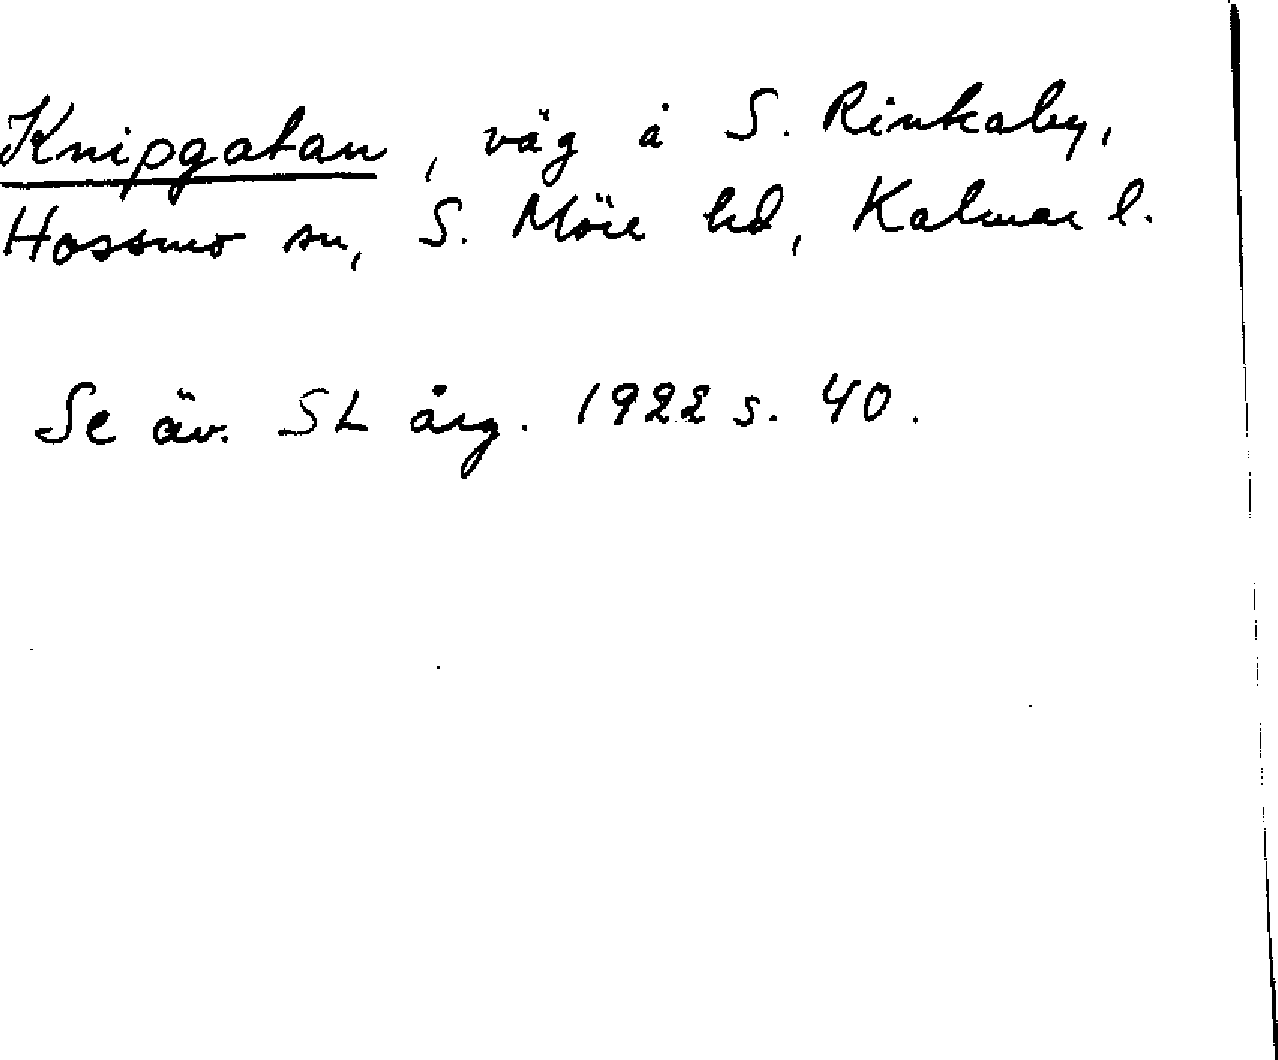 Knipgatan, väg å S. Rinkaby,
Hossmo sn, S. Möre hd, Kalmar l.
Se äv. SL årg. 1922 s. 40.